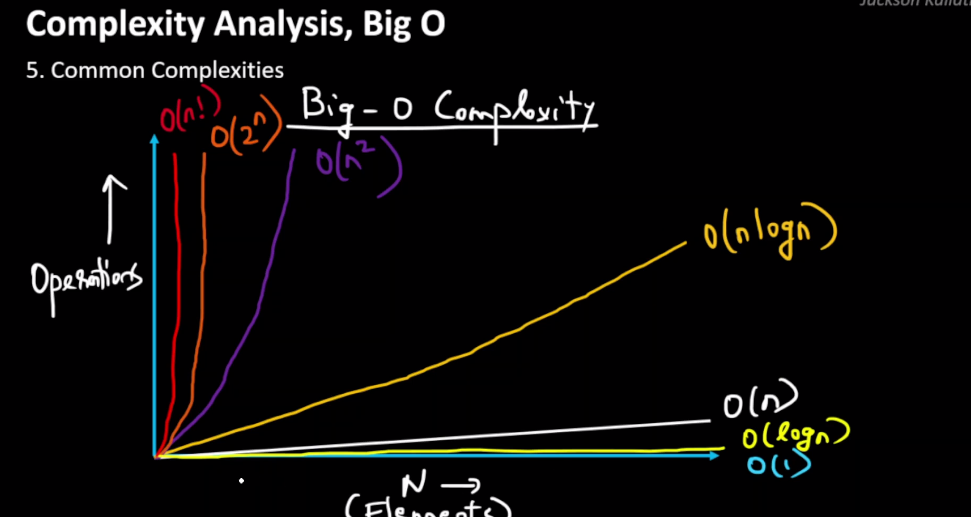 Complexity Analysis, Big O
5. Common Complexities
Big-O Complexity
O(n!)
O(2ⁿ)
O(n²)
O(nlogn)
Operations
O(n)
O(logn)
O(1)
N →
(Elements)